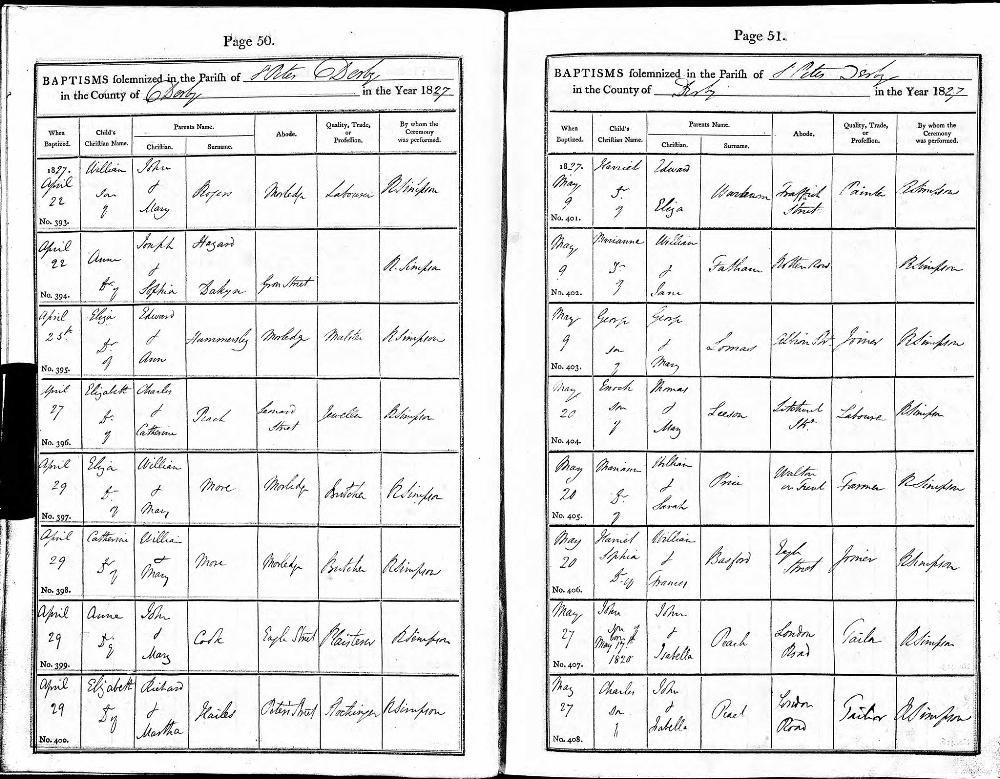 Page 50.
BAPTISMS solemnized in the Parish of St Peter Derby
in the County of Derby in the Year 1827
When Baptized. Child's Christian Name. Parents Name. Abode. Quality, Trade, or Profession. By whom the Ceremony was performed.
Christian. Surname.
1827. William John
April Son & Rogers Morledge Labourer R Simpson
22 of Mary
No. 393.
April Joseph Hazard
22 Anne & R. Simpson
Dr of Sophia Dakyn Iron Street
No. 394.
April Eliza Edward
25th Dr & Hammersley Morledge Maltster R Simpson
of Ann
No. 395.
April Elizabeth Charles
27 Dr & Peach Street Jeweller R Simpson
of Catherine
No. 396.
April Eliza William
29 Dr & More Morledge Butcher R Simpson
of Mary
No. 397.
April Catherine William
29 Dr of & Mary More Morledge Butcher R Simpson
No. 398.
April Anne John
29 Dr of & Cook Eagle Street Plaisterer R Simpson
Mary
No. 399.
April Elizabeth Richard
29 Dr of & Hailes Peter Street R Simpson
Martha
No. 400.
Page 51.
BAPTISMS solemnized in the Parish of St Peter Derby
in the County of Derby in the Year 1827
When Baptized. Child's Christian Name. Parents Name. Abode. Quality, Trade, or Profession. By whom the Ceremony was performed.
Christian. Surname.
1827. Harriet Edward
May Dr & Street Painter R Simpson
9 of Eliza
No. 401.
May Marianne William
9 Dr & Rotten Row R Simpson
of Jane
No. 402.
May George George
9 son & Lomas Joiner R Simpson
of Mary
No. 403.
May Enoch Thomas
20 son & Leeson Litchurch Str. Labourer R Simpson
of Mary
No. 404.
May Mariann William
20 Dr & Price Walton on Trent Farmer R Simpson
of Sarah
No. 405.
May Harriet William
20 Sophia & Basford Eagle Street Joiner R Simpson
Dr of Frances
No. 406.
May John John
27 son of & Peach London Road Tailor R Simpson
born May 17th 1820 Isabella
No. 407.
May Charles John
27 son & Peach London Road Tailor R Simpson
of Isabella
No. 408.